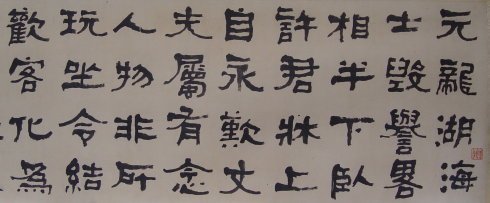 元龍湖海
士毀譽畧
相半下臥
許君牀上
自永歎丈
夫屬有念
人物非所
玩坐令結
歡客化為